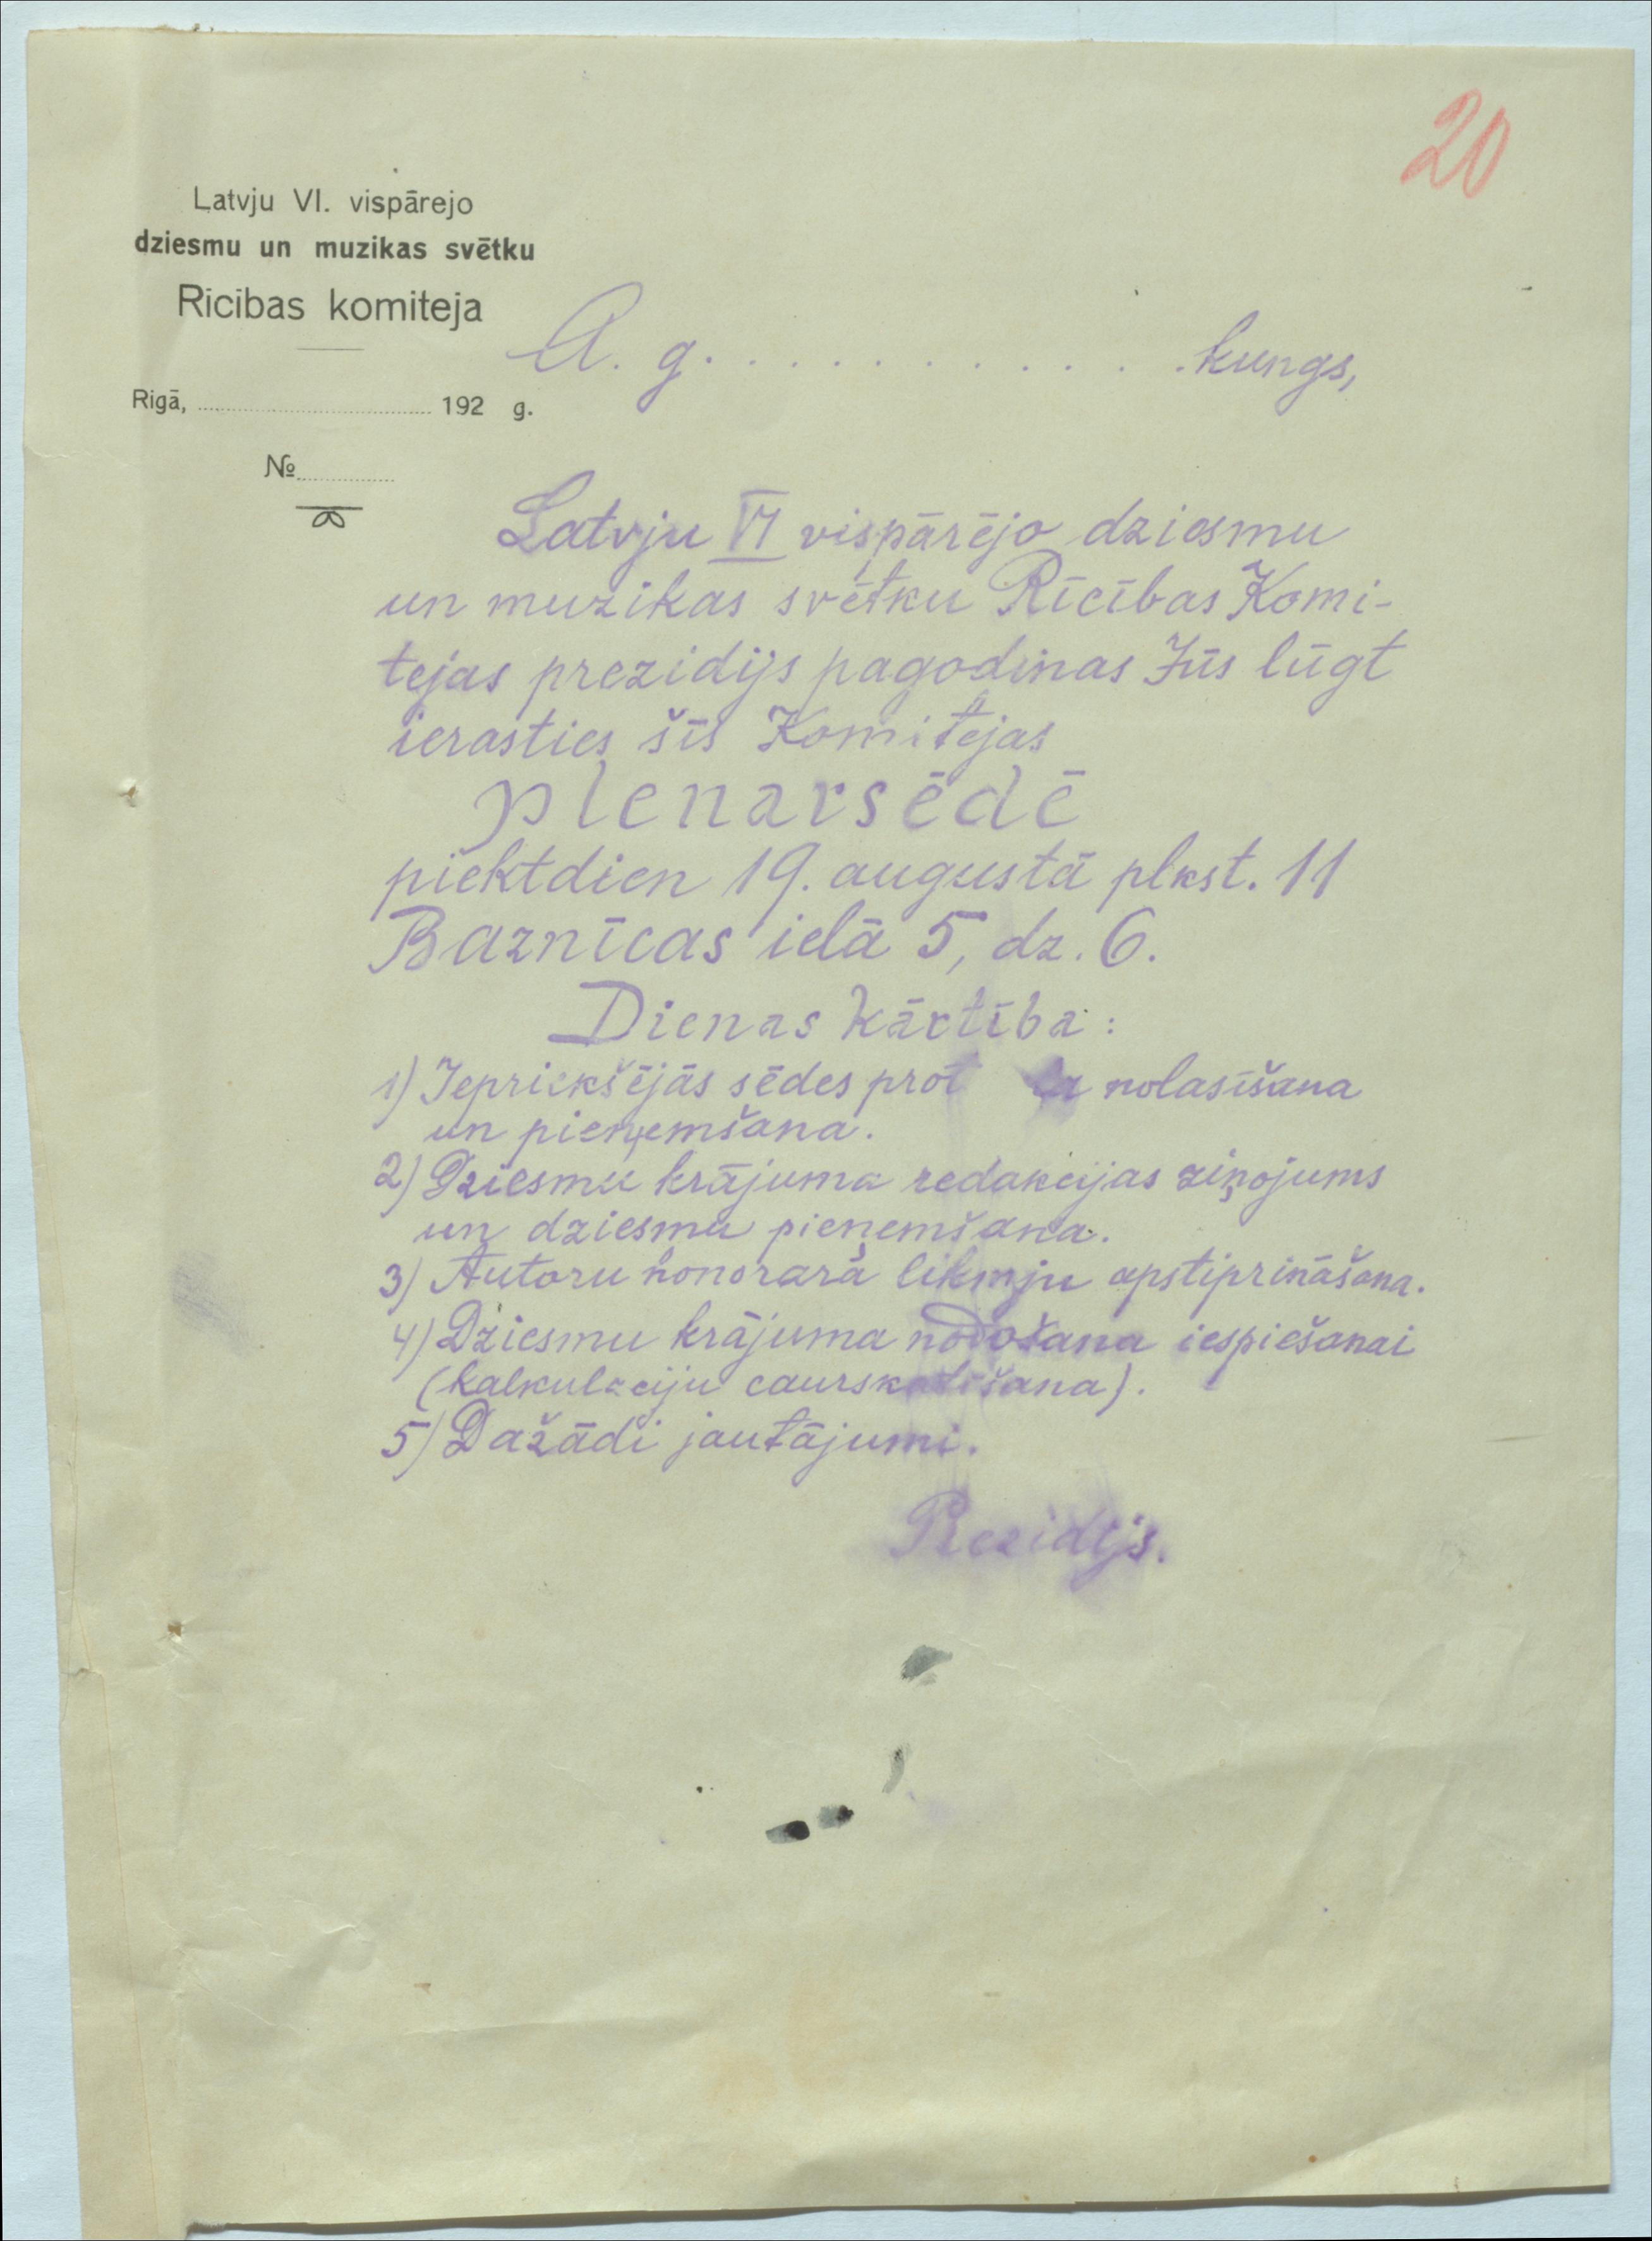 20
Latvju VI. vispārejo
dziesmu un muzikas svētku
Rīcības komiteja
A. g. . . . . . . . . . . . kungs,
Rigā, ........ 192 g.
№ ........
Latvju VI vispārējo dziesmu
un muzikas svētku Rīcības Komi-
tejas prezidijs pagodinas Jūs lūgt
ierasties šīs Komitejas
plenarsēdē
piektdien 19. augustā plkst. 11
Baznīcas ielā 5, dz. 6.
Dienas kārtība:
1) Iepriekšējās sēdes prot la nolasīšana
un pieņemšana.
2) Dziesmu krājuma redakcijas ziņojums
un dziesmu pieņemšana.
3) Autoru honorarā likmju apstiprināšana.
4) Dziesmu krājuma nodošana iespiešanai
(kalkulaciju caurskatīšana).
5) Dažādi jautājumi.
Prezidijs.